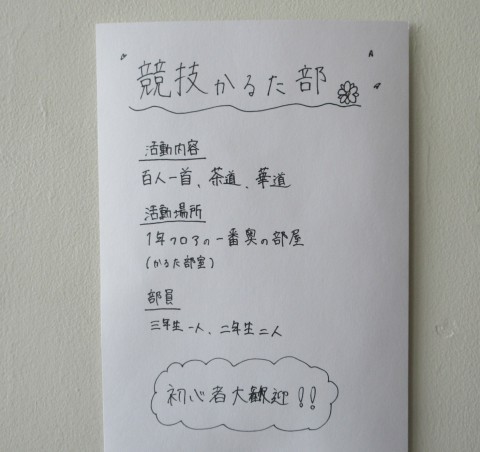 競技かるた部
活動内容
百人一首、茶道、華道
活動場所
1年フロアの一番奥の部屋
(かるた部室)
部員
三年生一人、二年生二人
初心者大歓迎!!